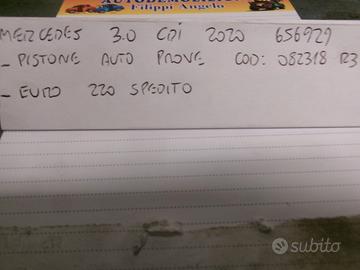 AUTODEMOLIZIONE
Filippi Angelo
MERCEDES 3.0 CDI 2020 656929
- PISTONE AUTO PROVE COD: 082318 R3
- EURO 220 SPEDITO
subito